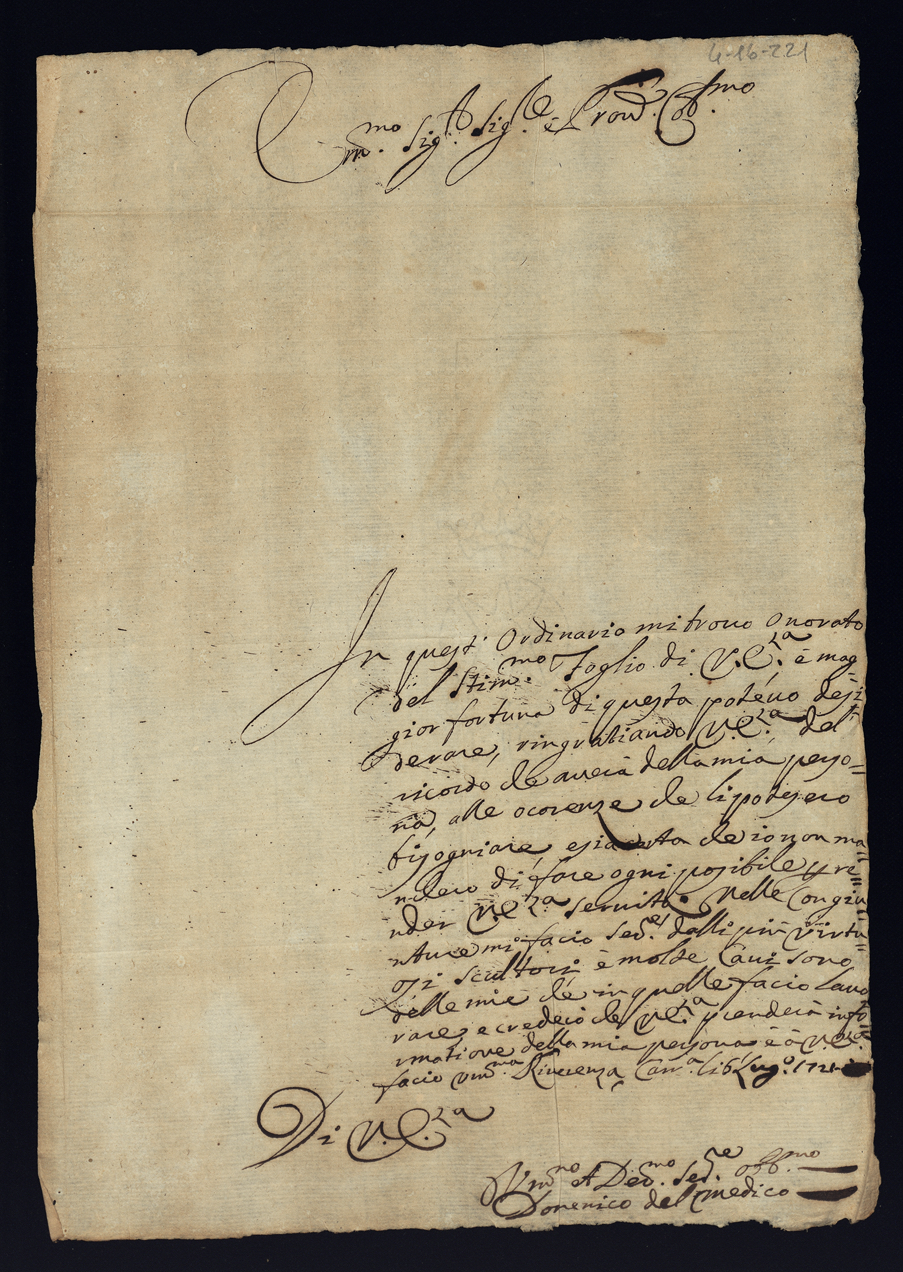 4-16-221
Em.mo Sig.r Sig.re è Prõn. Cõl.mo
In quest' Ordinario mi trouo Onorato
del Stim.mo Foglio di V.E.za è mag=
gior fortuna di questa poteuo desi=
derare, ringratiando V.E.za, del
ricordo che auerà della mia perso=
na, alle ocorenze che li potesero
bisogniare, e sia certa che io non ma=
ncherò di fare ogni posibile p re=
nder V.E.za seruita. Nelle Congiu=
nture mi facio Seru.e dalli più Virtu=
osi Scultori è molte Caue sono
delle mie che in quelle facio Lauo=
rare, e crederò che V.E.za prenderà info=
rmatione della mia persona è à V.E.za
facio Vm.ma Riuerenza Carr.a li 6 Lug.o 1721
Di V.E.za
Vm.mo et Deu.mo Ser.re obb.mo
Domenico del Medico